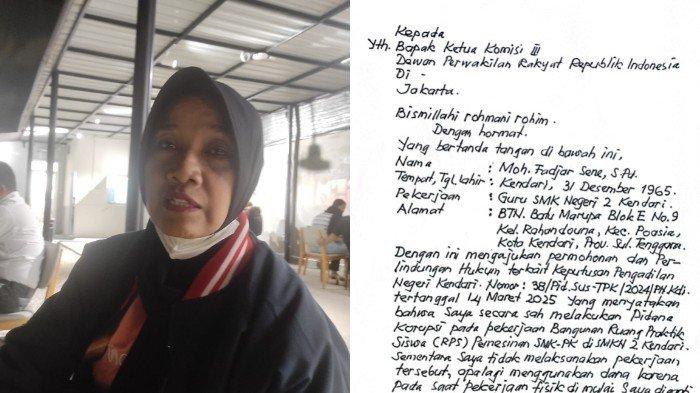 Kepada
Yth. Bapak Ketua Komisi III
Dewan Perwakilan Rakyat Republik Indonesia
Di -
Jakarta.
Bismillahi rohmani rohim.
Dengan hormat.
Yang bertanda tangan di bawah ini,
Nama : Moh. Fadjar Sene, S.Pd.
Tempat, Tgl. lahir : Kendari, 31 Desember 1965.
Pekerjaan : Guru SMK Negeri 2 Kendari.
Alamat : BTN. Batu Marupa Blok E No. 9
Kel. Rahandouna, Kec. Poasia,
Kota Kendari, Prov. Sul. Tenggara.
Dengan ini mengajukan permohonan dan Per-
lindungan Hukum terkait Keputusan Pengadilan
Negeri Kendari. Nomor: 38/Pid.Sus-TPK/2024/PN.Kdi.
tertanggal 14 Maret 2025 Yang menyatakan
bahwa Saya secara sah melakukan Pidana
Korupsi pada pekerjaan Bangunan Ruang Praktik
Siswa (RPS) Pemesinan SMK-PK di SMKN 2 Kendari.
Sementara Saya tidak melaksanakan pekerjaan
tersebut, apalagi menggunakan dana karena
pada saat pekerjaan fisik di mulai Saya diganti